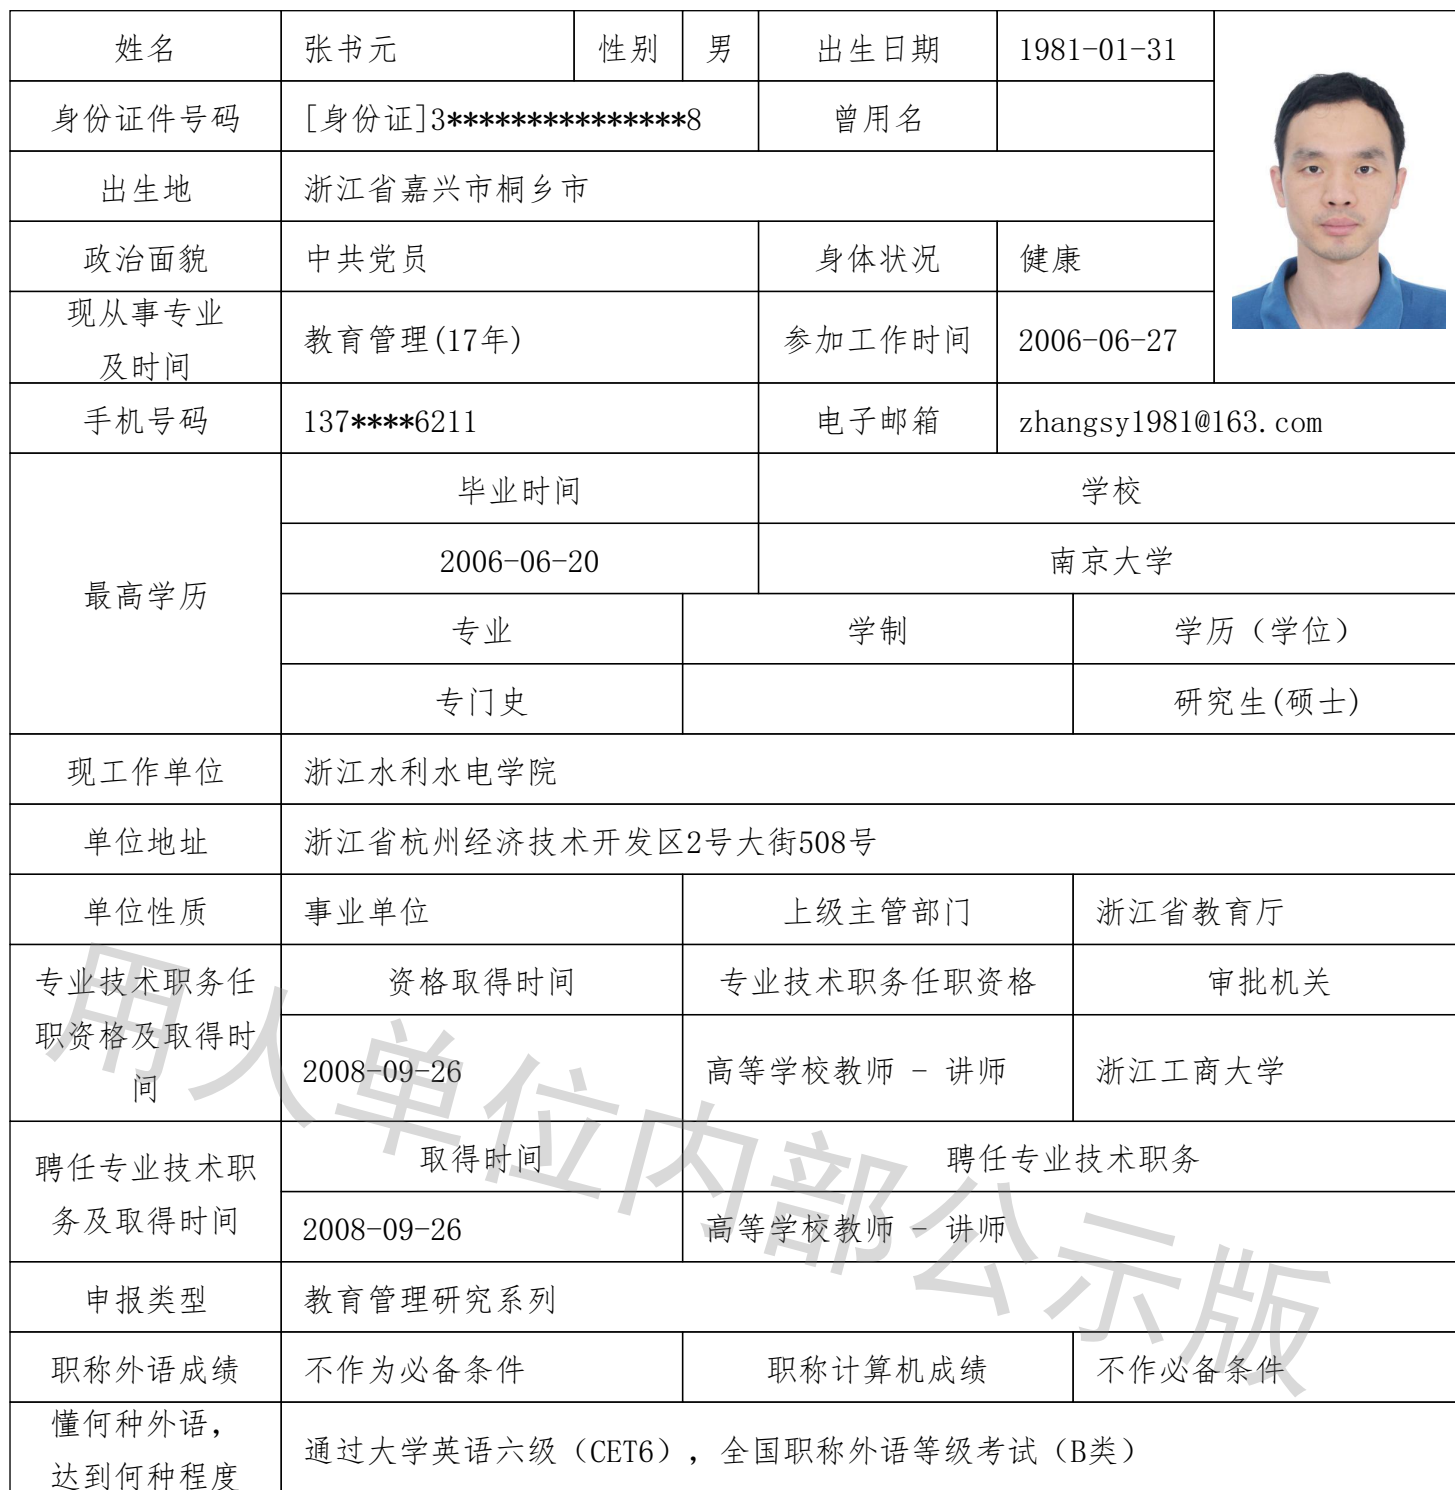 姓名 张书元 性别 男 出生日期 1981-01-31
身份证件号码 [身份证]3***************8 曾用名
出生地 浙江省嘉兴市桐乡市
政治面貌 中共党员 身体状况 健康
现从事专业
及时间
教育管理(17年) 参加工作时间 2006-06-27
手机号码 137****6211 电子邮箱 zhangsy1981@163.com
最高学历
毕业时间 学校
2006-06-20 南京大学
专业 学制 学历（学位）
专门史 研究生(硕士)
现工作单位 浙江水利水电学院
单位地址 浙江省杭州经济技术开发区2号大街508号
单位性质 事业单位 上级主管部门 浙江省教育厅
专业技术职务任
职资格及取得时
间
资格取得时间 专业技术职务任职资格 审批机关
2008-09-26 高等学校教师 - 讲师 浙江工商大学
聘任专业技术职
务及取得时间
取得时间 聘任专业技术职务
2008-09-26 高等学校教师 - 讲师
申报类型 教育管理研究系列
职称外语成绩 不作为必备条件 职称计算机成绩 不作必备条件
懂何种外语，
达到何种程度
通过大学英语六级（CET6），全国职称外语等级考试（B类）
用人单位内部公示版